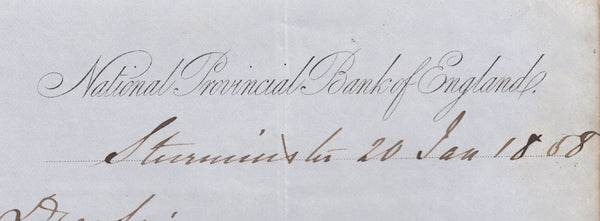 National Provincial Bank of England.
Sturminster 20 Jan 1868
Dear Sir